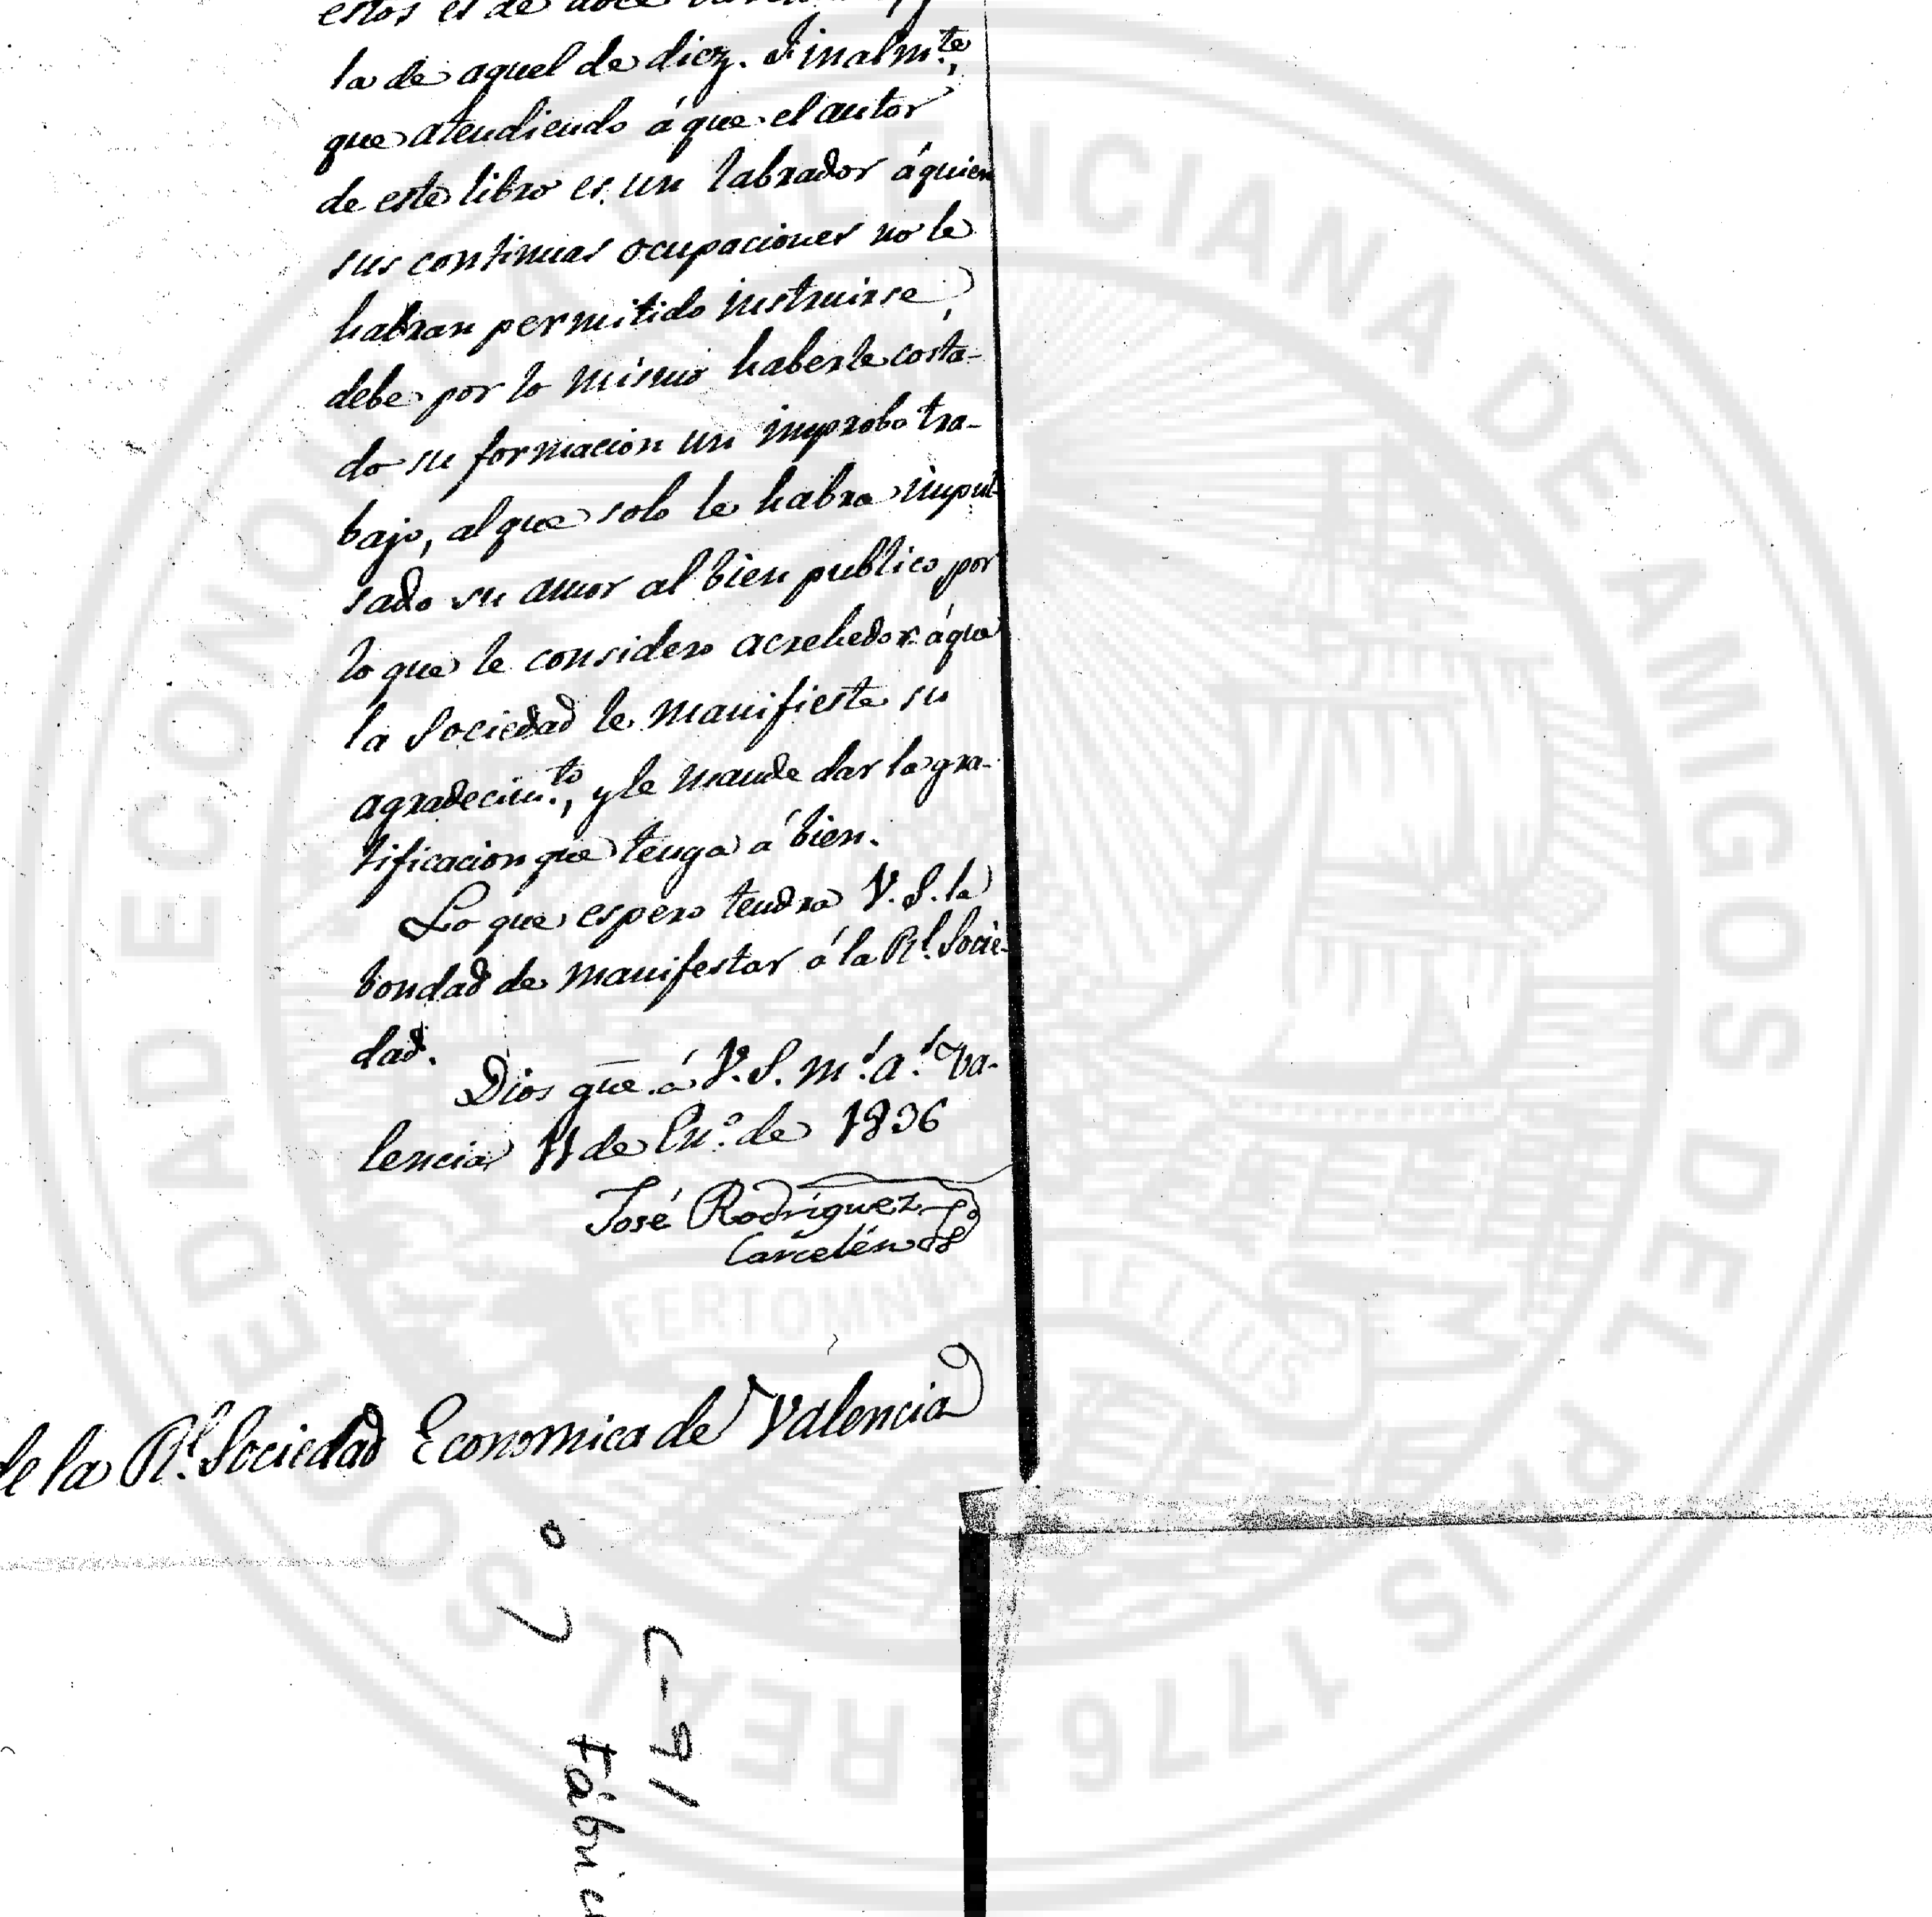 estos es de doce
la de aquel de diez. Finalm.te,
que atendiendo á que el autor
de este libro es un labrador á quien
sus continuas ocupaciones no le
habran permitido instruirse,
debe por lo mismo haberle costa-
do su formacion un improbo tra-
bajo, al que solo le habra impul-
sado su amor al bien publico por
lo que le considero acrehedor á que
la Sociedad le manifieste su
agradecim.to, y le mande dar la gra-
tificacion que tenga á bien.
Lo que espero tendra V.S. la
bondad de manifestar á la Rl. Socie-
dad.
Dios gue. á V.S. m.s a.s Va-
lencia 11 de En.o de 1836
José Rodriguez
Carcelén
de la Rl. Sociedad Economica de Valencia
C-91
Fábric
REAL SOCIEDAD ECONOMICA VALENCIANA DE AMIGOS DEL PAIS 1776
FERT OMNIA TELLUS